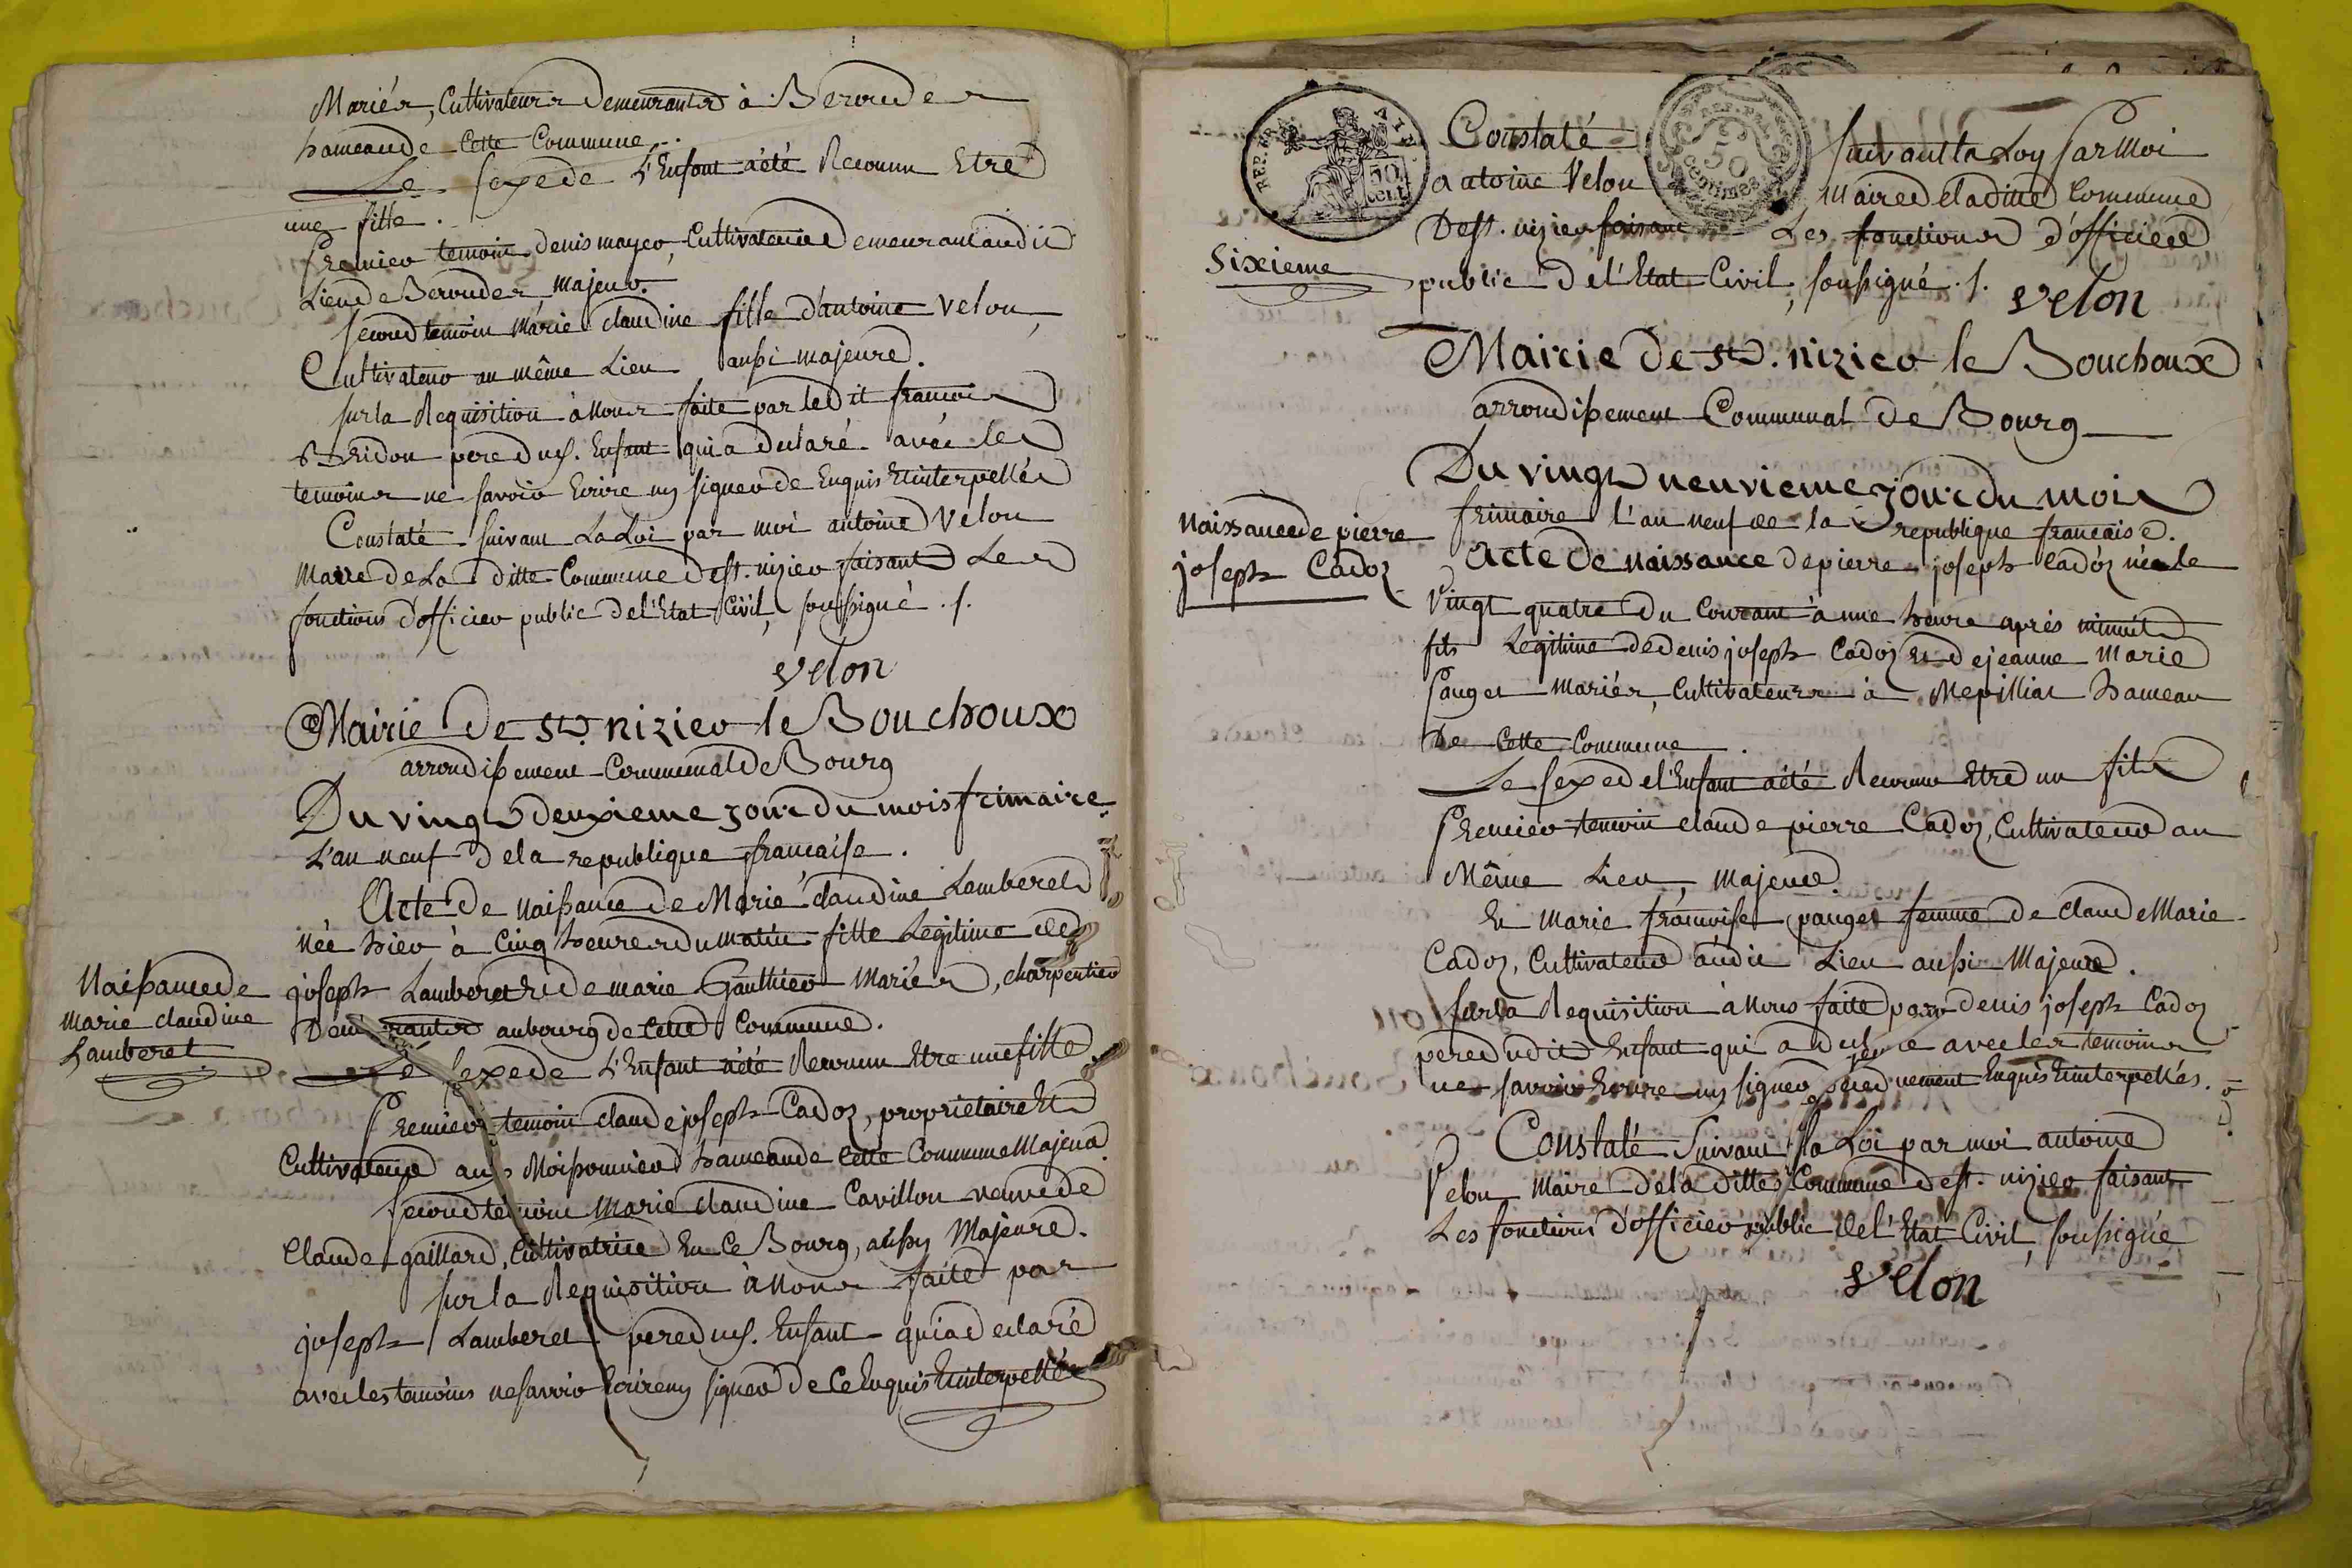 Mariés, Cultivateurs demeurants à Beroudes
hameau de cette Commune.
Le sexe de L'Enfant a été Reconnu Etre
une fille.
Premier temoin denis mayer, Cultivateur demeurant au dit
Lieu de Beroudes, majeur.
second temoin marie claudine fille d'antoine velon,
Cultivateur au même Lieu aussi majeure.
sur la Requisition à Nous faite par le dit francois
Bridon pere dud. Enfant qui a declaré avec les
temoins ne savoir Ecrire ny signer de Enquis Et interpellés
Constaté suivant La Loi par moi antoine Velon
Maire de La ditte Commune de st. nizier faisant Les
fonctions d'officier public de l'Etat Civil, soussigné ./.
velon
Mairie de st. nizier le Bouchoux
arrondissement Communal de Bourg
Du vingt deuxieme jour du mois frimaire
L'an neuf de la republique française.
Acte de Naissance de Marie claudine Lamberet
Née hier à Cinq heures du matin fille Legitime de
joseph Lamberet Et de marie Gauthier Mariés, charpentier
Demeurants au bourg de cette Commune.
Naissance de
marie claudine
Lamberet
Le sexe de L'Enfant a été Reconnu Etre une fille
Premier temoin claude joseph Cadoz, proprietaire Et
Cultivateur aux Moissonnier hameau de cette Commune Majeur.
second témoin marie claudine Cavillon veuve de
Claude gaillard, Cultivatrice En ce Bourg, aussy Majeure.
sur la Requisition à Nous faite par
joseph Lamberet pere dud. Enfant qui a declaré
avec les temoins ne savoir Ecrire ny signer de Ce Enquis Et interpellés
REP. FRA.
50
cent.
REP. FRA.
50
centimes
Constaté suivant la Loy Par Moi
antoine Velon Maire de la ditte Commune
De st. nizier faisant Les fonctions d'officier
Sixieme
public de l'Etat Civil, soussigné ./.
velon
Mairie de st. nizier le Bouchoux
arrondissement Communal de Bourg
Du vingt neuvieme jour du mois
frimaire l'an neuf de la republique francaise.
Naissance de pierre
joseph Cadoz
Acte de naissance de pierre joseph Cadoz né le
Vingt quatre du Courant à une heure après minuit
fils Legitime de denis joseph Cadoz Et de jeanne Marie
Pauget Mariés, Cultivateurs à Mepilliat hameau
De Cette Commune.
Le sexe de l'Enfant a été Reconnu Etre un fils
Premier temoin claude pierre Cadoz, Cultivateur au
Même Lieu, majeur.
Et marie francoise pauget femme de claude Marie
Cadoz, Cultivateur au dit Lieu aussi Majeure.
sur la Requisition à Nous faite par denis joseph Cadoz
pere du dit Enfant qui a avec les temoins
ne savoir Ecrire ny signer Enquis Et interpellés.
Constaté Suivant la Loi par moi antoine
Velon Maire de la ditte Commune de st. nizier faisant
Les fonctions d'officier public de l'Etat Civil, soussigné
velon